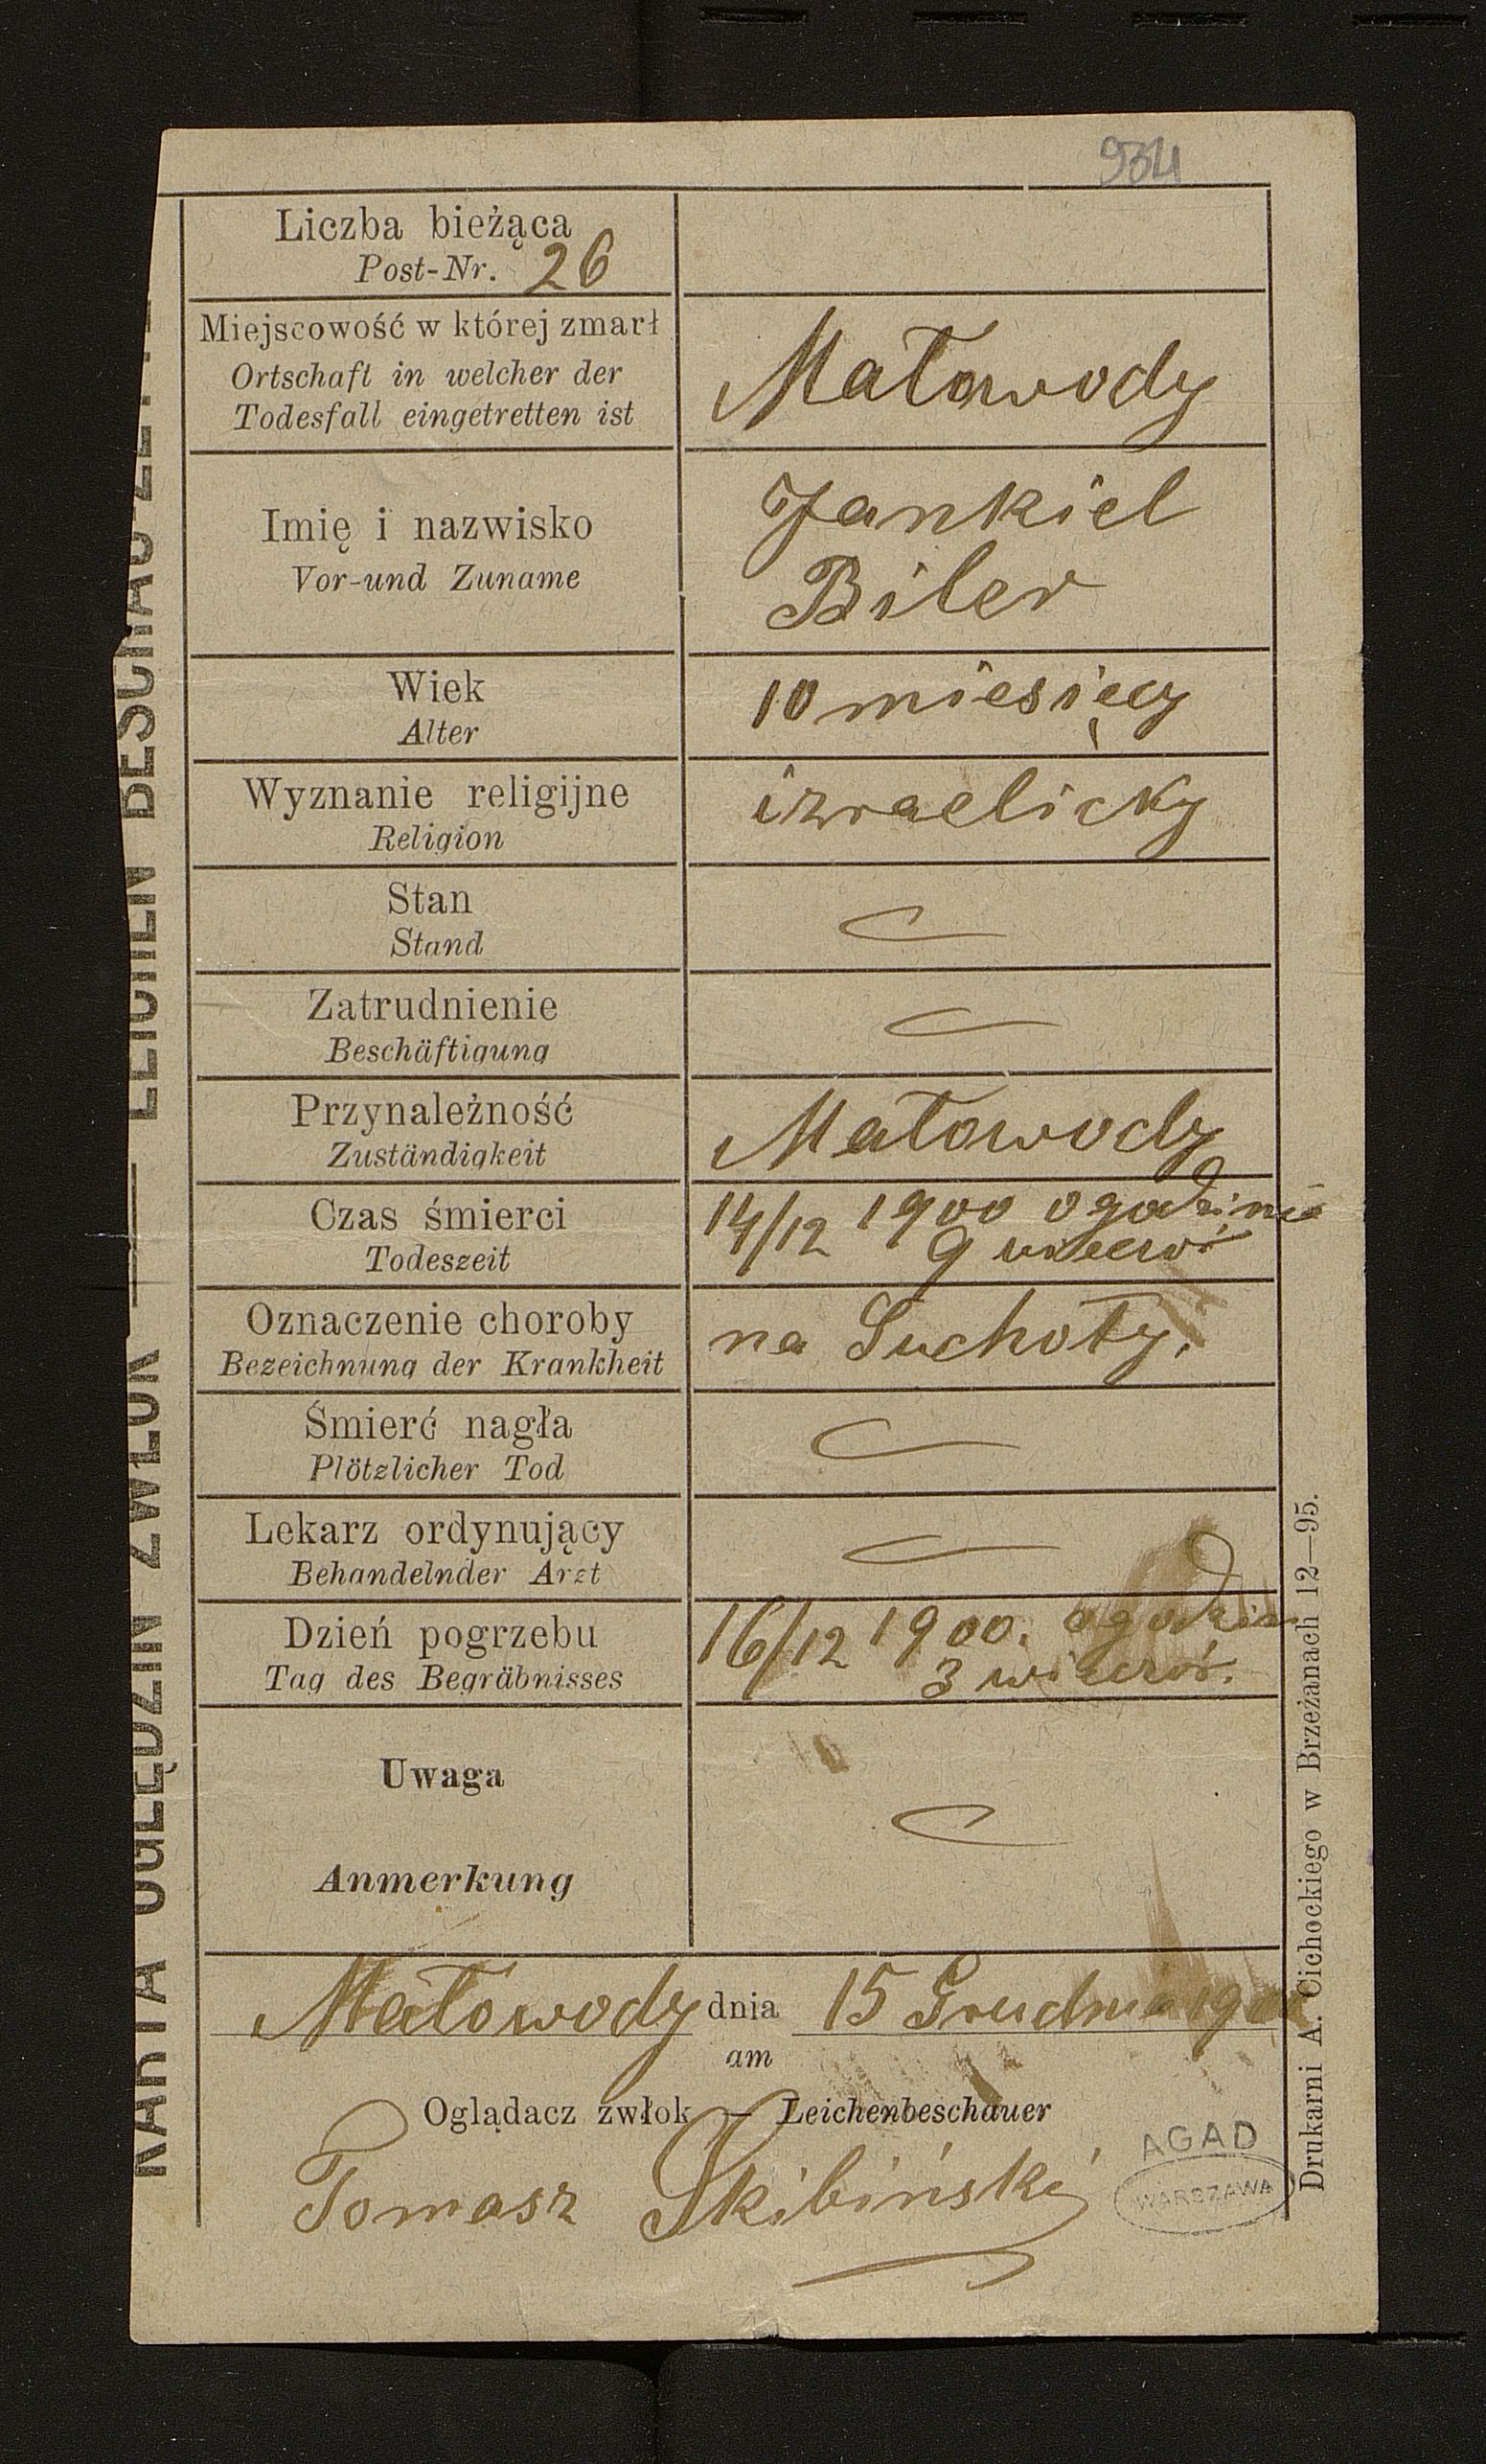 934
Liczba bieżąca
Post-Nr. 26
Miejscowość w której zmarł
Ortschaft in welcher der
Todesfall eingetretten ist
Małowody
Imię i nazwisko
Vor-und Zuname
Jankiel
Biler
Wiek
Alter
10 miesięcy
Wyznanie religijne
Religion
izraelicky
Stan
Stand
Zatrudnienie
Beschäftigung
Przynależność
Zuständigkeit
Małowody
Czas śmierci
Todeszeit
14/12 1900 o godzinie
9
Oznaczenie choroby
Bezeichnung der Krankheit
na Suchoty.
Śmierć nagła
Plötzlicher Tod
Lekarz ordynujący
Behandelnder Arzt
Dzień pogrzebu
Tag des Begräbnisses
16/12 1900. o godzin
3
Uwaga
Anmerkung
Małowody dnia 15 Grudnia 1900
am
Oglądacz zwłok — Leichenbeschauer
Tomasz Skibiński
AGAD
WARSZAWA
KARTA OGLĘDZIN ZWŁOK — LEICHEN BESCHAU
Drukarni A. Cichockiego w Brzeżanach 12—95.